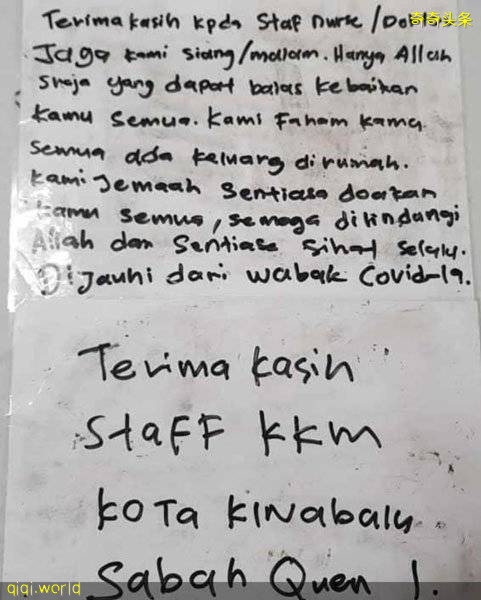 奇奇头条
Terima kasih kpda Staf nurse /Dokt
Jaga kami siang/malam. Hanya Allah
Sraja yang dapat balas kebaikan
kamu semua. Kami Faham kamu
semua ada keluarg dirumah.
kami Jemaah Sentiasa doakan
kamu semua, semoga dilindungi
Allah dan Sentiasa Sihat Selalu.
Dijauhi dari wabak Covid-19.
Terima kasih
StaFF KKM
KOTA KINabalu
Sabah Quen 1.
qiqi.world